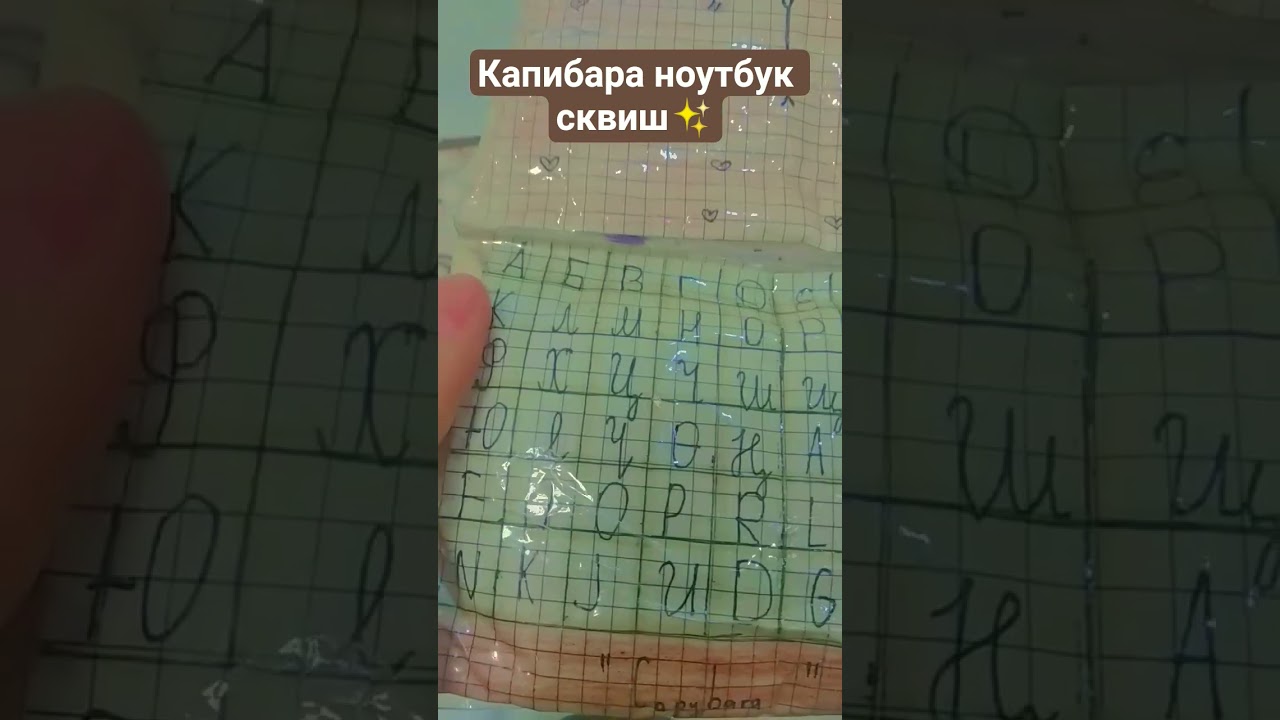 Капибара ноутбук
сквиш✨
А Б В Г D Е
К Л М Н О Р
Ф Х Ц Ч Ш Щ
Ю Ч Ө Ң А
F O P R L
N K J U D G
" Capybara "